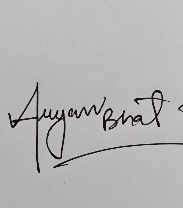 Auyan Bhat